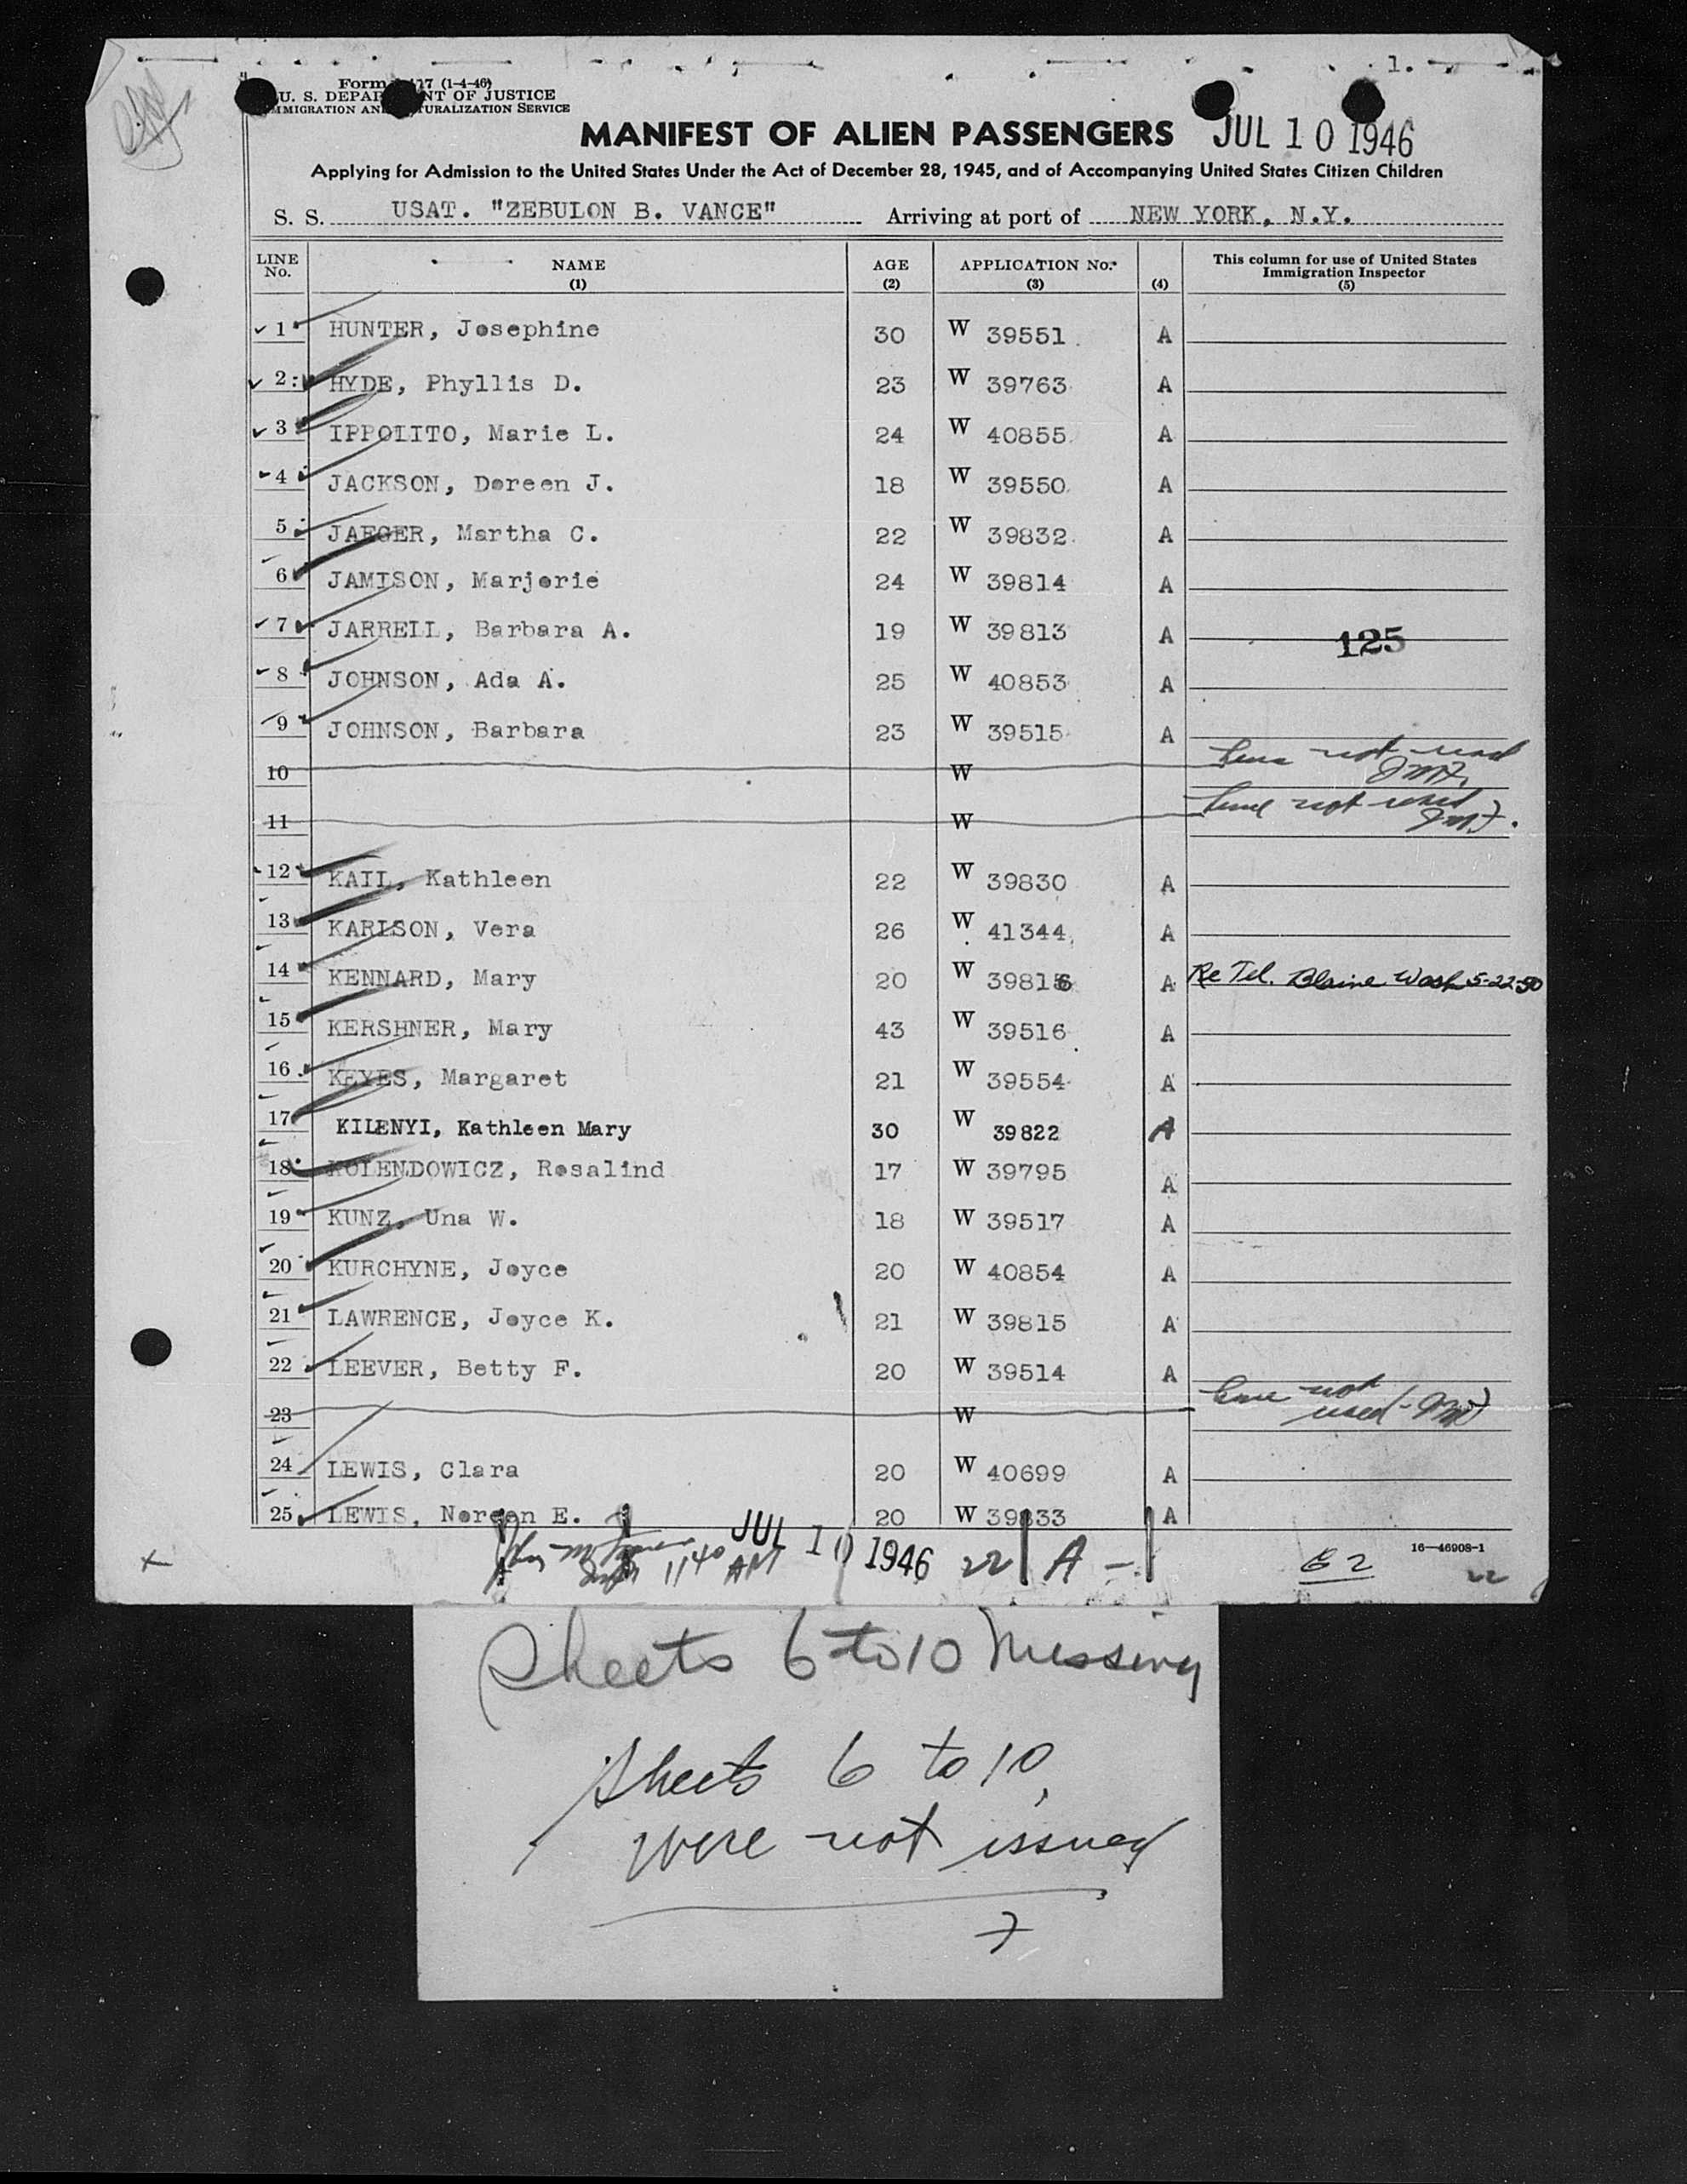 1.
Form 17 (1-4-46)
U. S. DEPAR NT OF JUSTICE
MMIGRATION AN TURALIZATION SERVICE
MANIFEST OF ALIEN PASSENGERS JUL 10 1946
Applying for Admission to the United States Under the Act of December 28, 1945, and of Accompanying United States Citizen Children
S. S. USAT. "ZEBULON B. VANCE" Arriving at port of NEW YORK, N.Y.
LINE No. NAME (1) AGE (2) APPLICATION No. (3) (4) This column for use of United States Immigration Inspector (5)
1 HUNTER, Josephine 30 W 39551 A
2 HYDE, Phyllis D. 23 W 39763 A
3 IPPOLITO, Marie L. 24 W 40855 A
4 JACKSON, Doreen J. 18 W 39550 A
5 JAEGER, Martha C. 22 W 39832 A
6 JAMISON, Marjorie 24 W 39814 A
7 JARRELL, Barbara A. 19 W 39813 A 125
8 JOHNSON, Ada A. 25 W 40853 A
9 JOHNSON, Barbara 23 W 39515 A
10 W line not used
11 W line not used
12 KAIL, Kathleen 22 W 39830 A
13 KARLSON, Vera 26 W 41344 A
14 KENNARD, Mary 20 W 39816 A Re Tel. Blaine Wash 5-22-50
15 KERSHNER, Mary 43 W 39516 A
16 KEYES, Margaret 21 W 39554 A
17 KILENYI, Kathleen Mary 30 W 39822 A
18 KOLENDOWICZ, Rosalind 17 W 39795 A
19 KUNZ, Una W. 18 W 39517 A
20 KURCHYNE, Joyce 20 W 40854 A
21 LAWRENCE, Joyce K. 21 W 39815 A
22 LEEVER, Betty F. 20 W 39514 A
23 W line not used
24 LEWIS, Clara 20 W 40699 A
25 LEWIS, Noreen E. 20 W 39833 A
JUL 10 1946 22 A
11 40 AM
16—46908-1
22
Sheets 6 to 10 Missing
Sheets 6 to 10
were not issued